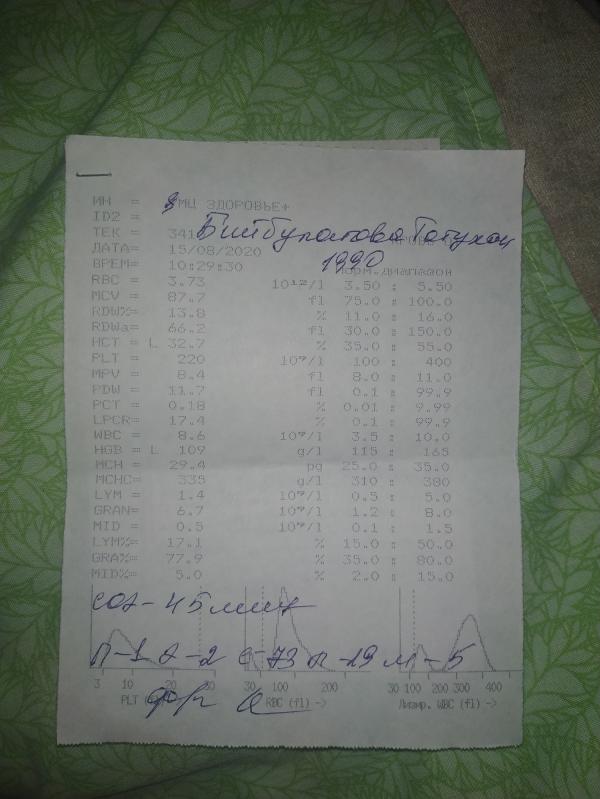 ИН = ЯМЦ ЗДОРОВЬЕ+
ID2 =
ТЕК = 341
Бийбулатова
ДАТА= 15/08/2020
1990
ВРЕМ= 10:29:30 Норм.диапазон
RBC = 3.73 10¹²/l 3.50 : 5.50
MCV = 87.7 fl 75.0 : 100.0
RDW%= 13.8 % 11.0 : 16.0
RDWa= 66.2 fl 30.0 : 150.0
HCT = L 32.7 % 35.0 : 55.0
PLT = 220 10⁹/l 100 : 400
MPV = 8.4 fl 8.0 : 11.0
PDW = 11.7 fl 0.1 : 99.9
PCT = 0.18 % 0.01 : 9.99
LPCR= 17.4 % 0.1 : 99.9
WBC = 8.6 10⁹/l 3.5 : 10.0
HGB = L 109 g/l 115 : 165
MCH = 29.4 pg 25.0 : 35.0
MCHC= 335 g/l 310 : 380
LYM = 1.4 10⁹/l 0.5 : 5.0
GRAN= 6.7 10⁹/l 1.2 : 8.0
MID = 0.5 10⁹/l 0.1 : 1.5
LYM%= 17.1 % 15.0 : 50.0
GRA%= 77.9 % 35.0 : 80.0
MID%= 5.0 % 2.0 : 15.0
соэ - 45 мм/ч
п-1 э-2 с-73 л-19 м-5
3 10 20 30 100 200 30 100 200 300 400
PLT RBC (fl) -> Лизир. WBC (fl) ->